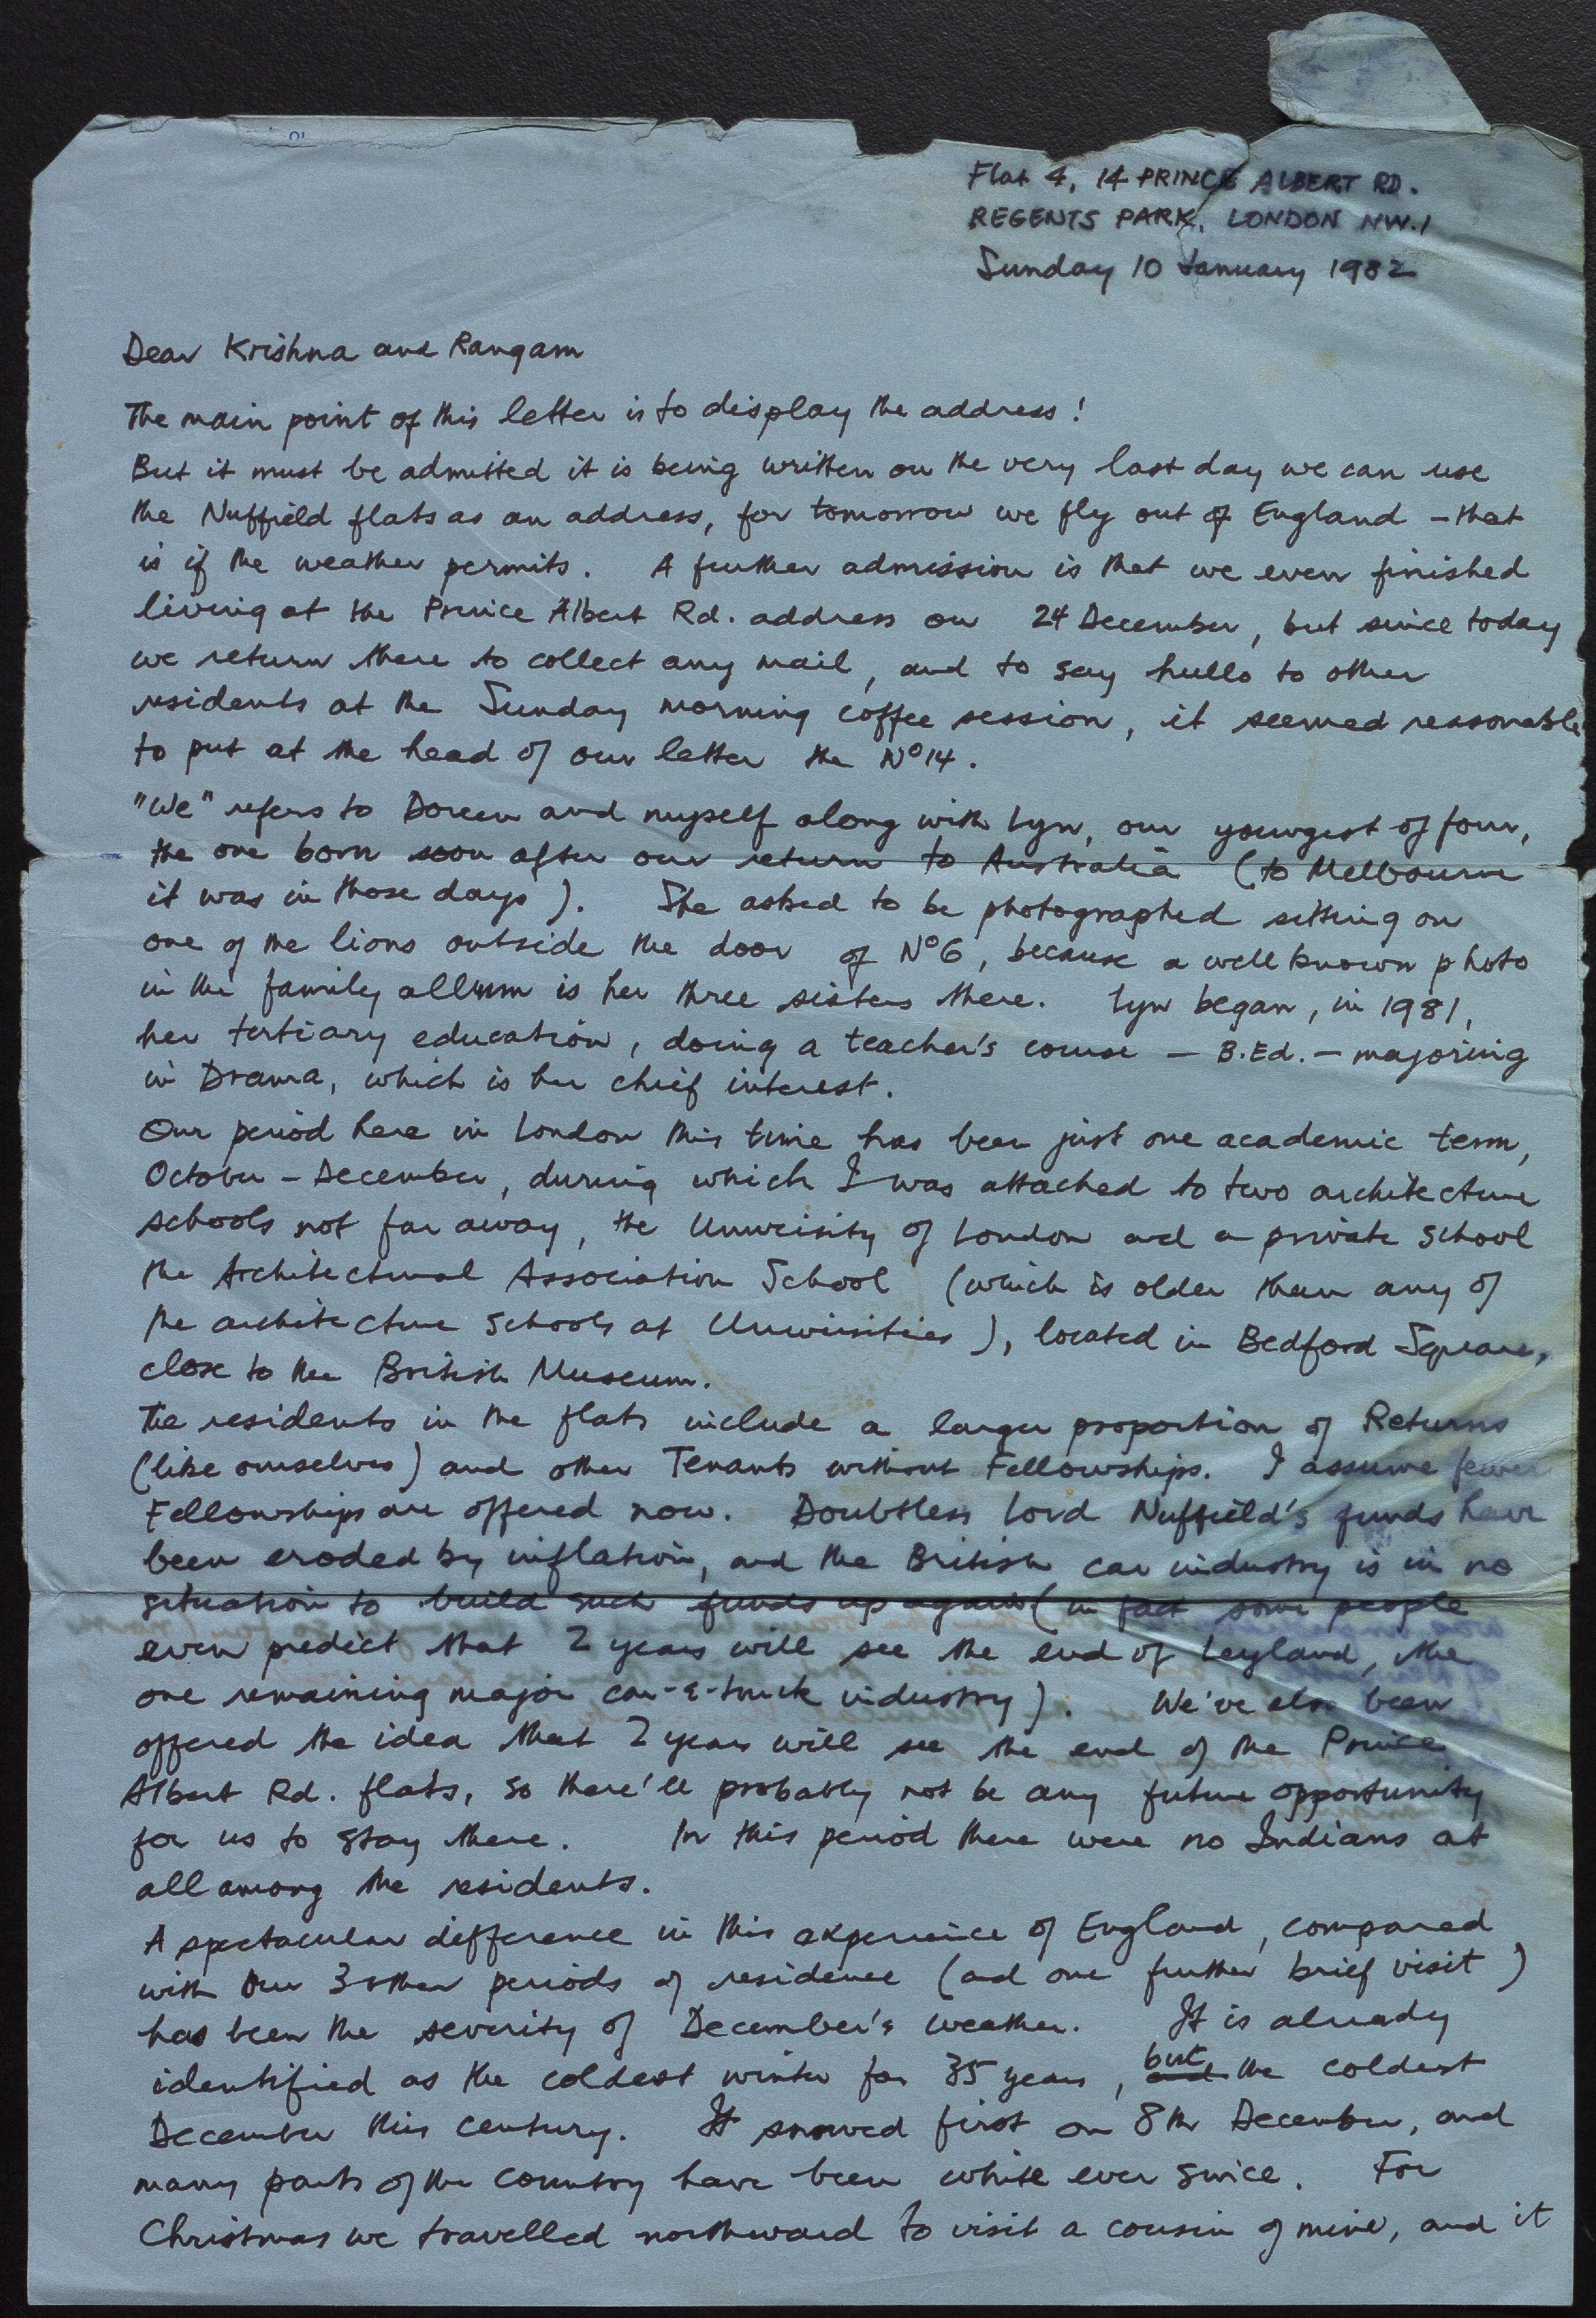 Flat 4, 14 PRINCE ALBERT RD.
REGENTS PARK, LONDON NW.1
Sunday 10 January 1982
Dear Krishna and Rangam
The main point of this letter is to display the address!
But it must be admitted it is being written on the very last day we can use
the Nuffield flats as an address, for tomorrow we fly out of England – that
is if the weather permits. A further admission is that we even finished
living at the Prince Albert Rd. address on 24 December, but since today
we return there to collect any mail, and to say hullo to other
residents at the Sunday morning coffee session, it seemed reasonable
to put at the head of our letter the Nº14.
"We" refers to Doreen and myself along with Lyn, our youngest of four,
the one born soon after our return to Australia (to Melbourne
it was in those days). She asked to be photographed sitting on
one of the lions outside the door of Nº6, because a well known photo
in the family album is her three sisters there. Lyn began, in 1981,
her tertiary education, doing a teacher's course – B.Ed. – majoring
in Drama, which is her chief interest.
Our period here in London this time has been just one academic term,
October – December, during which I was attached to two architecture
schools not far away, the University of London and a private school
the Architectural Association School (which is older than any of
the architecture schools at Universities), located in Bedford Square,
close to the British Museum.
The residents in the flats include a larger proportion of Returns
(like ourselves) and other Tenants without Fellowships. I assume fewer
Fellowships are offered now. Doubtless Lord Nuffield's funds have
been eroded by inflation, and the British car industry is in no
situation to build such funds up again (in fact some people
even predict that 2 years will see the end of Leyland, the
one remaining major car-&-truck industry). We've also been
offered the idea that 2 years will see the end of the Prince
Albert Rd. flats, so there'll probably not be any future opportunity
for us to stay there. In this period there were no Indians at
all among the residents.
A spectacular difference in this experience of England, compared
with our 3 other periods of residence (and one further brief visit)
has been the severity of December's weather. It is already
identified as the coldest winter for 35 years, but the coldest
December this century. It snowed first on 8th December, and
many parts of the country have been white ever since. For
Christmas we travelled northward to visit a cousin of mine, and it